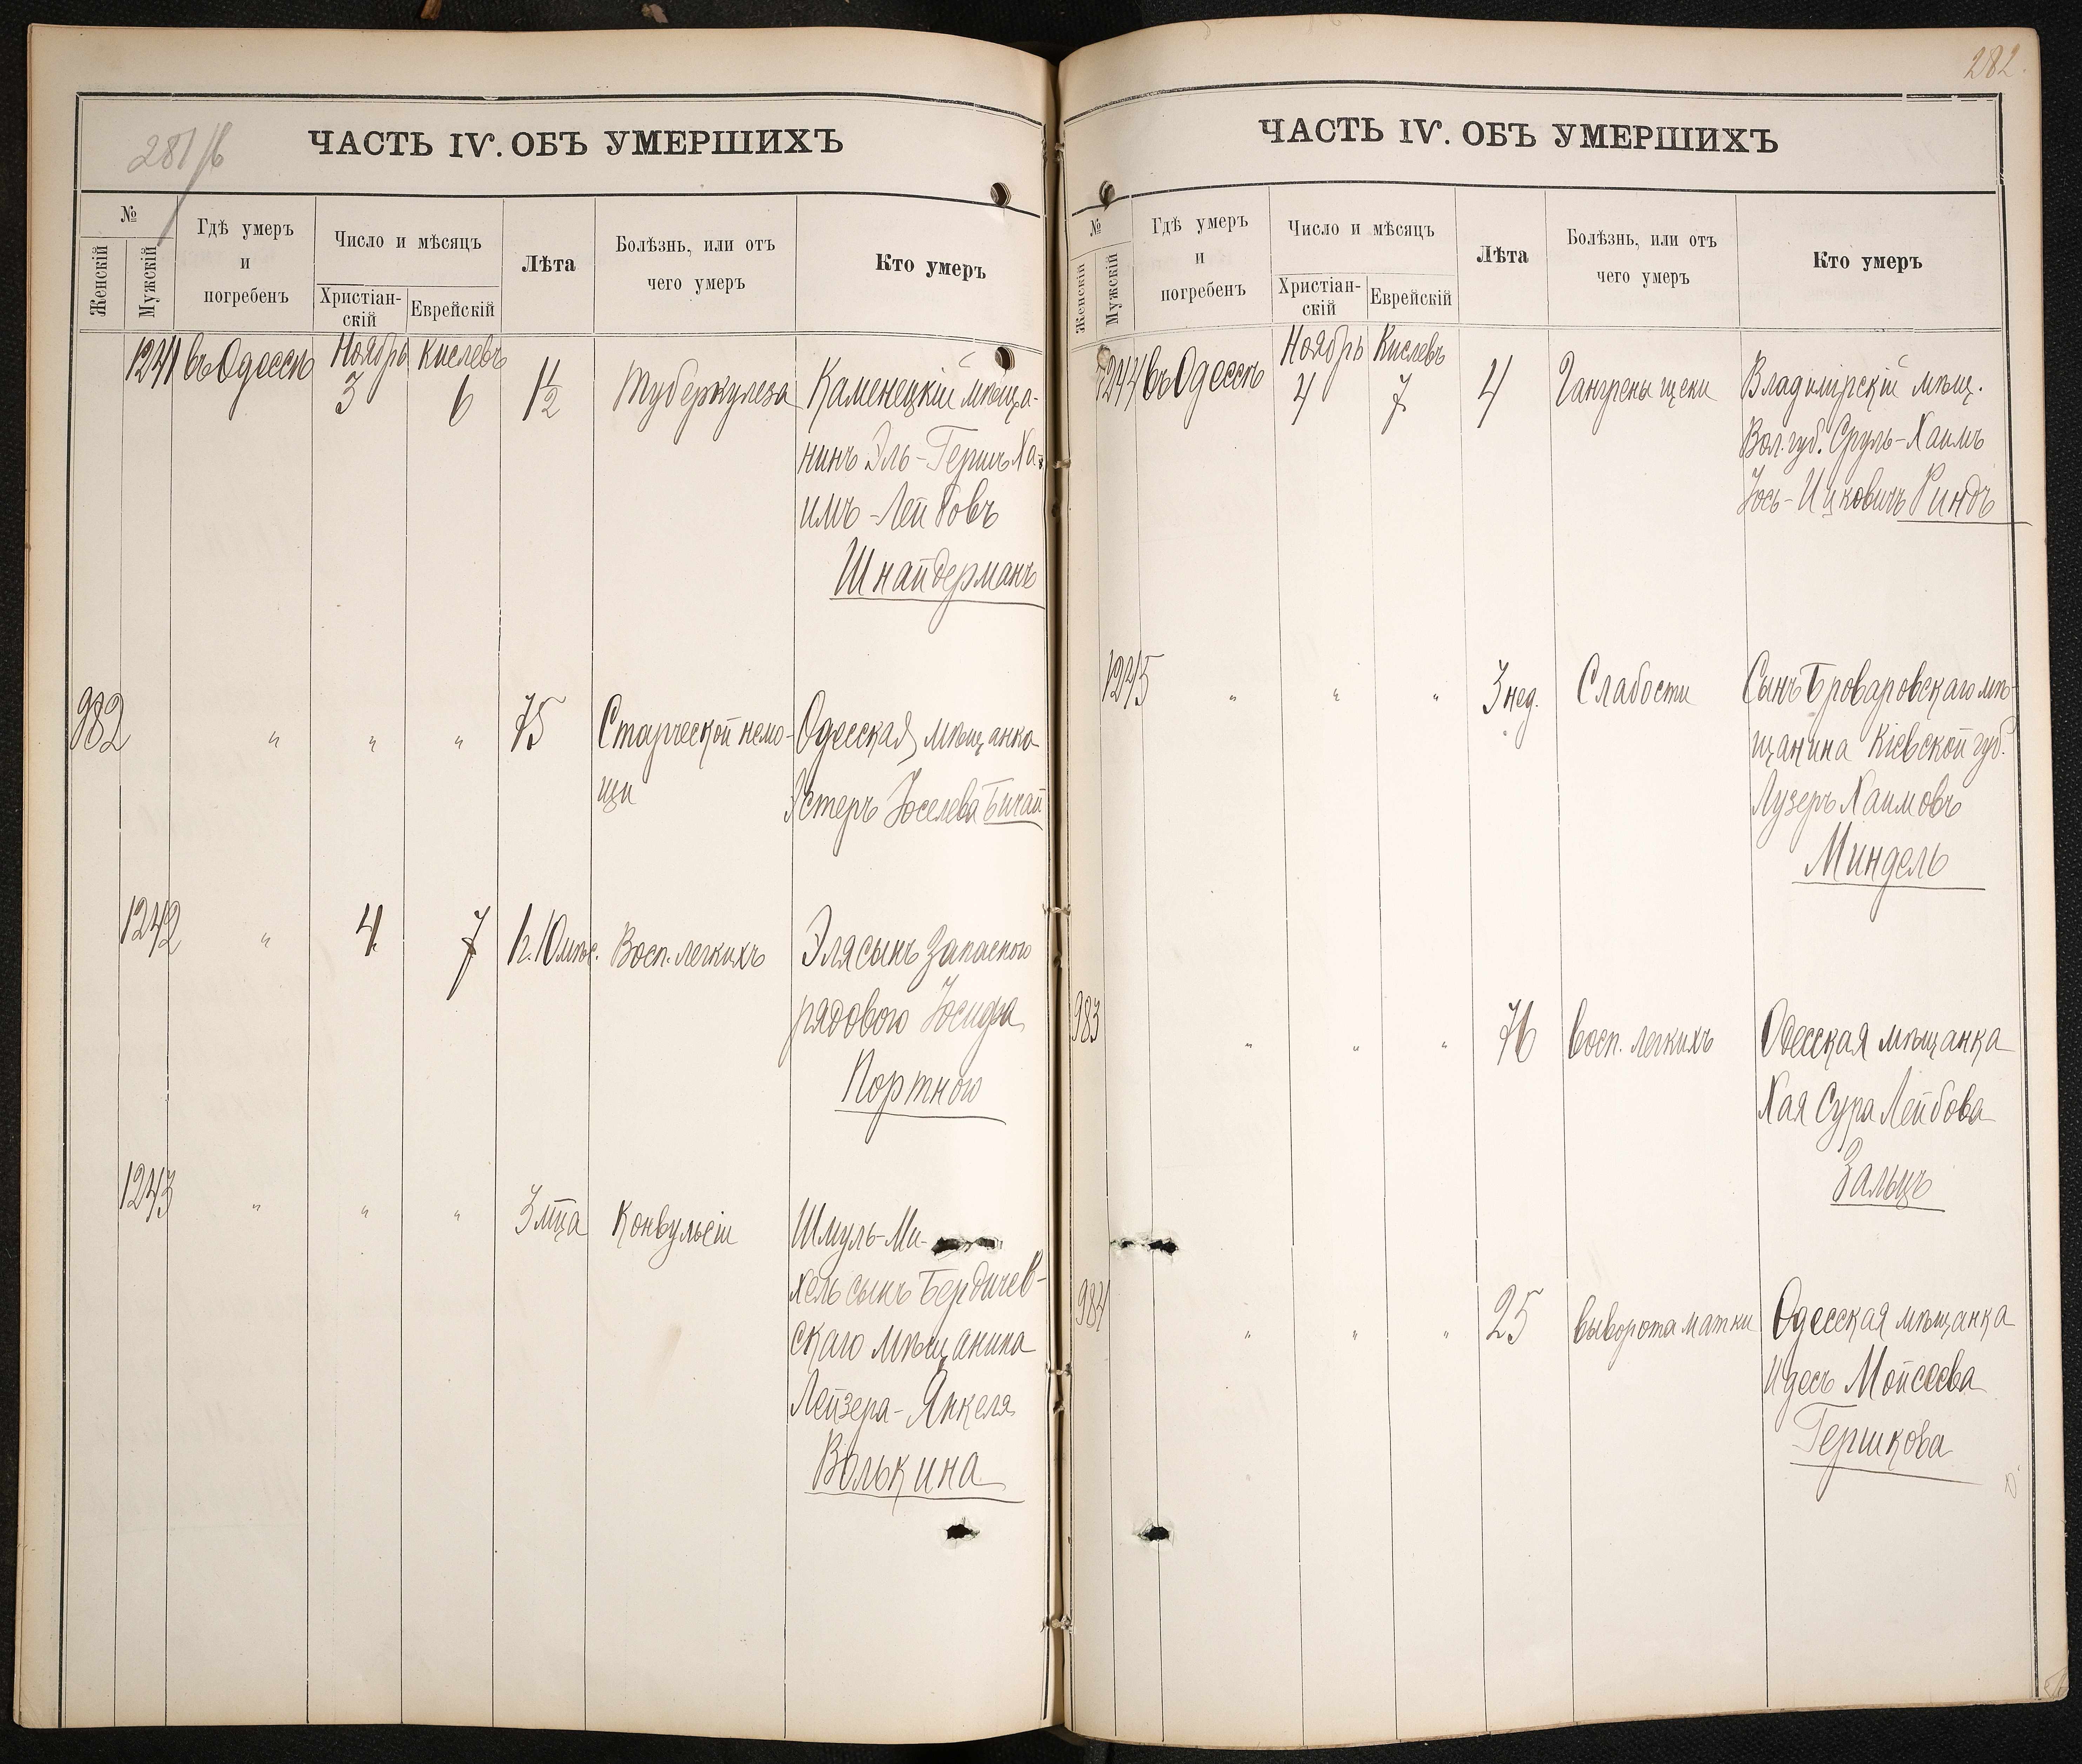 281/б
ЧАСТЬ IV. ОБЪ УМЕРШИХЪ
№
Женскій
Мужскій
Гдѣ умеръ
и
погребенъ
Число и мѣсяцъ
Христіан-
скій
Еврейскій
Лѣта
Болѣзнь, или отъ
чего умеръ
Кто умеръ
1241 въ Одессѣ Ноябрь 3 Кислевъ 6 1½ Туберкулеза Каменецкій мѣща-
нинъ Эль-Гершъ Ха-
имъ-Лейбовъ
Шнайдерманъ
982 " " " 75 Старческой немо- Одесская мѣщанка
щи Эстеръ Іоселева Бичай
1242 " 4 7 1 г. 10 мѣс. Восп. легкихъ Эля сынъ запасного
рядового Іосифа
Портного
1243 " " " 3 мца Конвульсіи Шмуль-Ми-
хель сынъ Бердичев-
скаго мѣщанина
Лейзера-Янкеля
Волькина
282.
ЧАСТЬ IV. ОБЪ УМЕРШИХЪ
№
Женскій
Мужскій
Гдѣ умеръ
и
погребенъ
Число и мѣсяцъ
Христіан-
скій
Еврейскій
Лѣта
Болѣзнь, или отъ
чего умеръ
Кто умеръ
1244 въ Одессѣ Ноябрь 4 Кислевъ 7 4 Гангрены щеки Владимірскій мѣщ.
Вол. губ. Сруль-Хаимъ
Іось-Ицковичъ Риндъ
1245 " " " 3 нед. Слабости Сынъ Броваровскаго мѣ-
щанина Кіевской губ.
Лузеръ Хаимовъ
Миндель
983 " " " 76 восп. легкихъ Одесская мѣщанка
Хая Сура Лейбова
Зальцъ
984 " " " 25 выворота матки Одесская мѣщанка
Идесъ Мойсеева
Гершкова